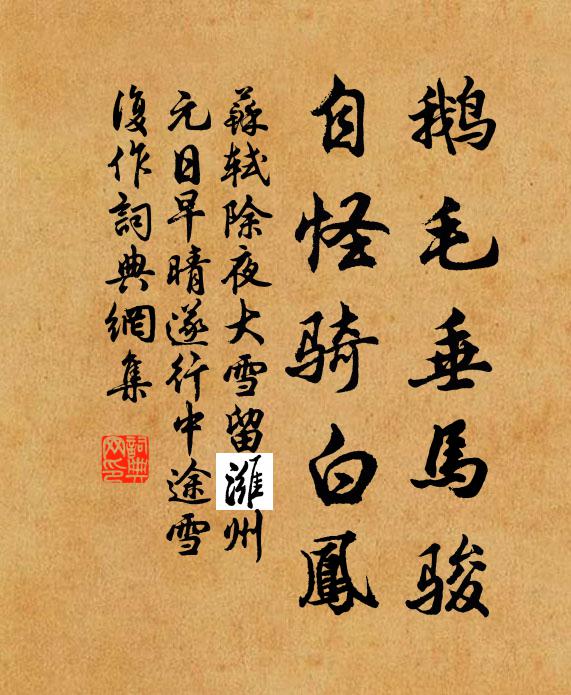 鵝毛垂馬駿
自怪騎白鳳
蘇軾除夜大雪留濰州
元日早晴遂行中途雪
復作詞典網集
詞典網印